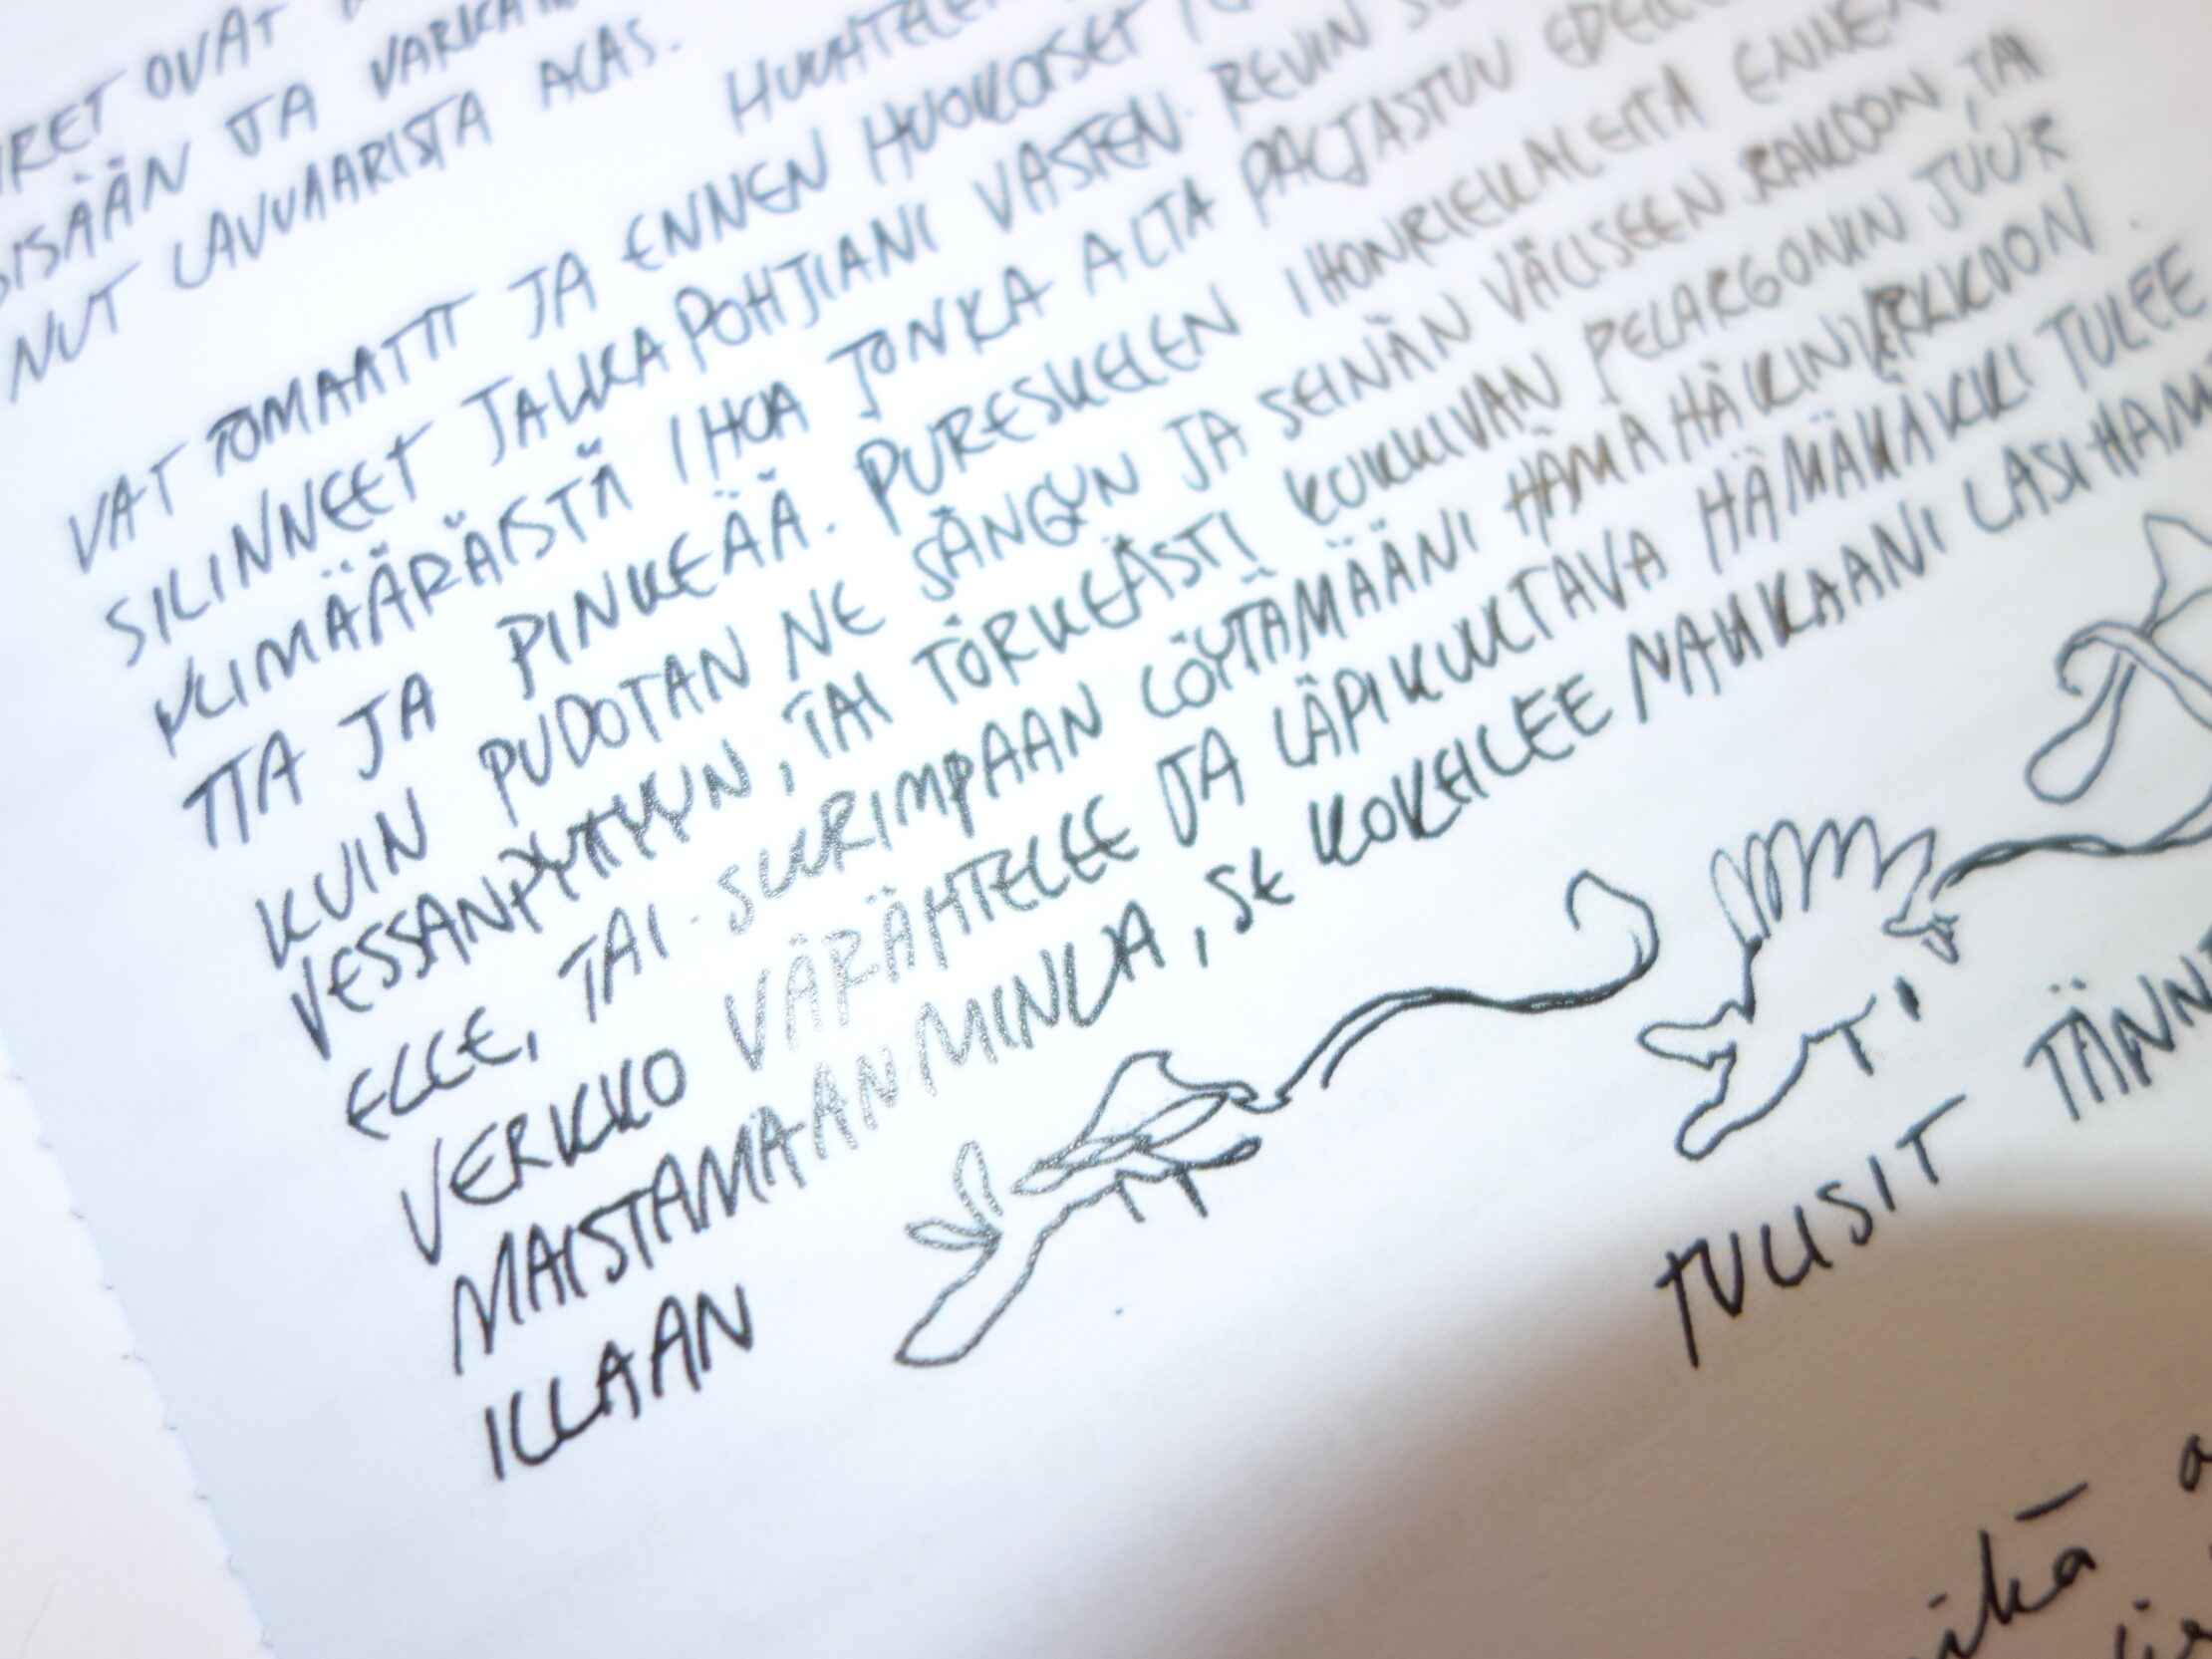 OVAT
SISÄÄN JA
NUT LAVUAARISTA ALAS.
VAT TOMAATTI JA ENNEN HUOKOISET
SILINNEET JALKAPOHJIANI VASTEN. REVIN
YLIMÄÄRÄISTÄ IHOA JONKA ALTA PALJASTUU
TTA JA PINKEÄÄ. PURESKELEN IHONRIEKALEITA ENNEN
KUIN PUDOTAN NE SÄNGYN JA SEINÄN VÄLISEEN RAKOON, TAI
VESSANPYTTYYN, TAI TÖRKEÄSTI KUKKIVAN PELARGONIN JUUR
ELLE, TAI SUURIMPAAN LÖYTÄMÄÄNI HÄMÄHÄKINVERKKOON.
VERKKO VÄRÄHTELEE JA LÄPIKUULTAVA HÄMÄHÄKKI TULEE
MAISTAMAAN MINUA, SE KOKEILEE NAHKAANI LASIHAM
ILLAAN
TULISIT TÄNN